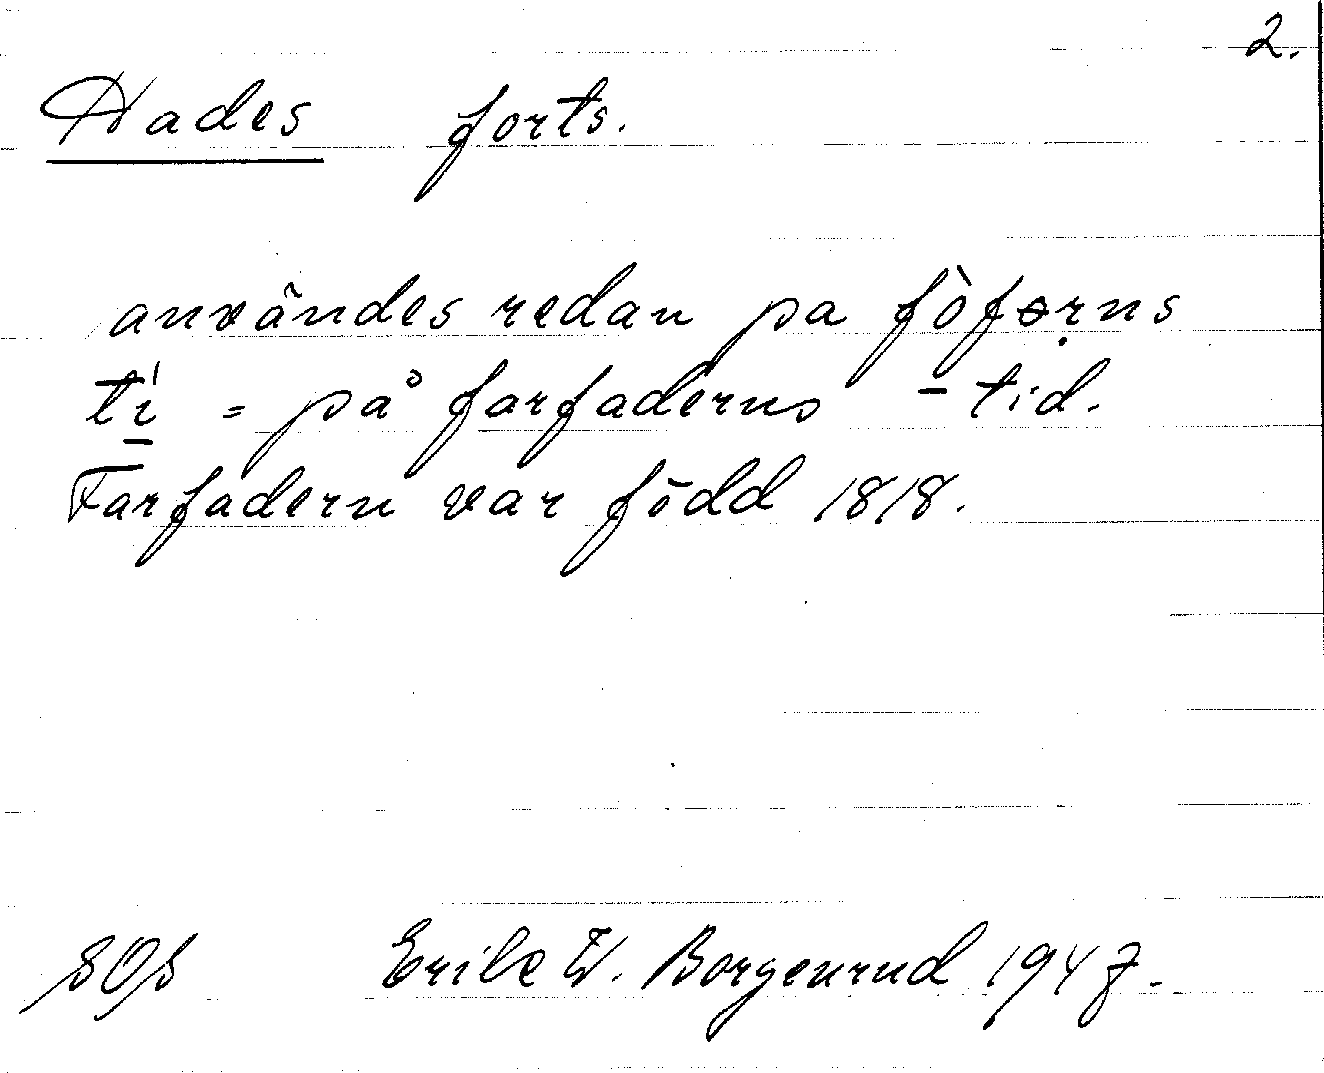 2.
Hades forts.
användes redan pa fòførns
tí = på farfaderns - tid.
Farfadern var född 1818.
Erik W. Borgenrud 1947.